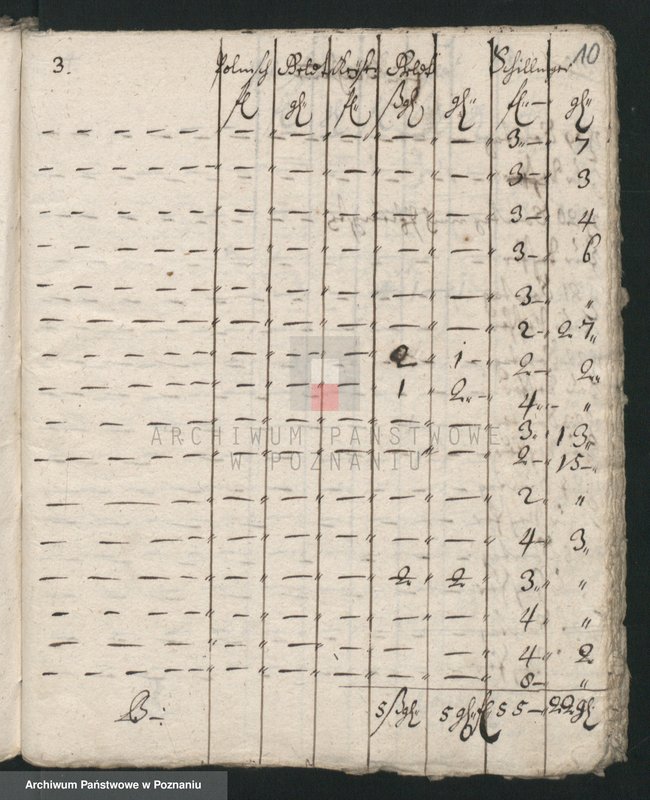 3. Polnisch Geldt Geldt Schillinge 10
fl gl fl ßgl gl fl gl
— — — — — — — — — — 3 — 7
— — — — — — — — — — 3 — 3
— — — — — — — — — — 3 — 4
— — — — — — — — — — 3 — 6
— — — — — — — — — — 3 — "
— — — — — — — — — — 2 — 27
— — — — — — — — 2 " 1 " 2 — 2
— — — — — — — — 1 " 2 " 4 — "
— — — — — — — — — — 3 " 13
— — — — — — — — — — 2 — 15
— — — — — — — — — — 2 "
— — — — — — — — — — 4 — 3
— — — — — — — — 2 " 2 " 3 " "
— — — — — — — — — — 4 " "
— — — — — — — — — — 4 " 2
— — — — — — — — — — 8 — "
5 ßgl 5 gl fl 55 — 22 gl
ARCHIWUM PAŃSTWOWE
W POZNANIU
Archiwum Państwowe w Poznaniu